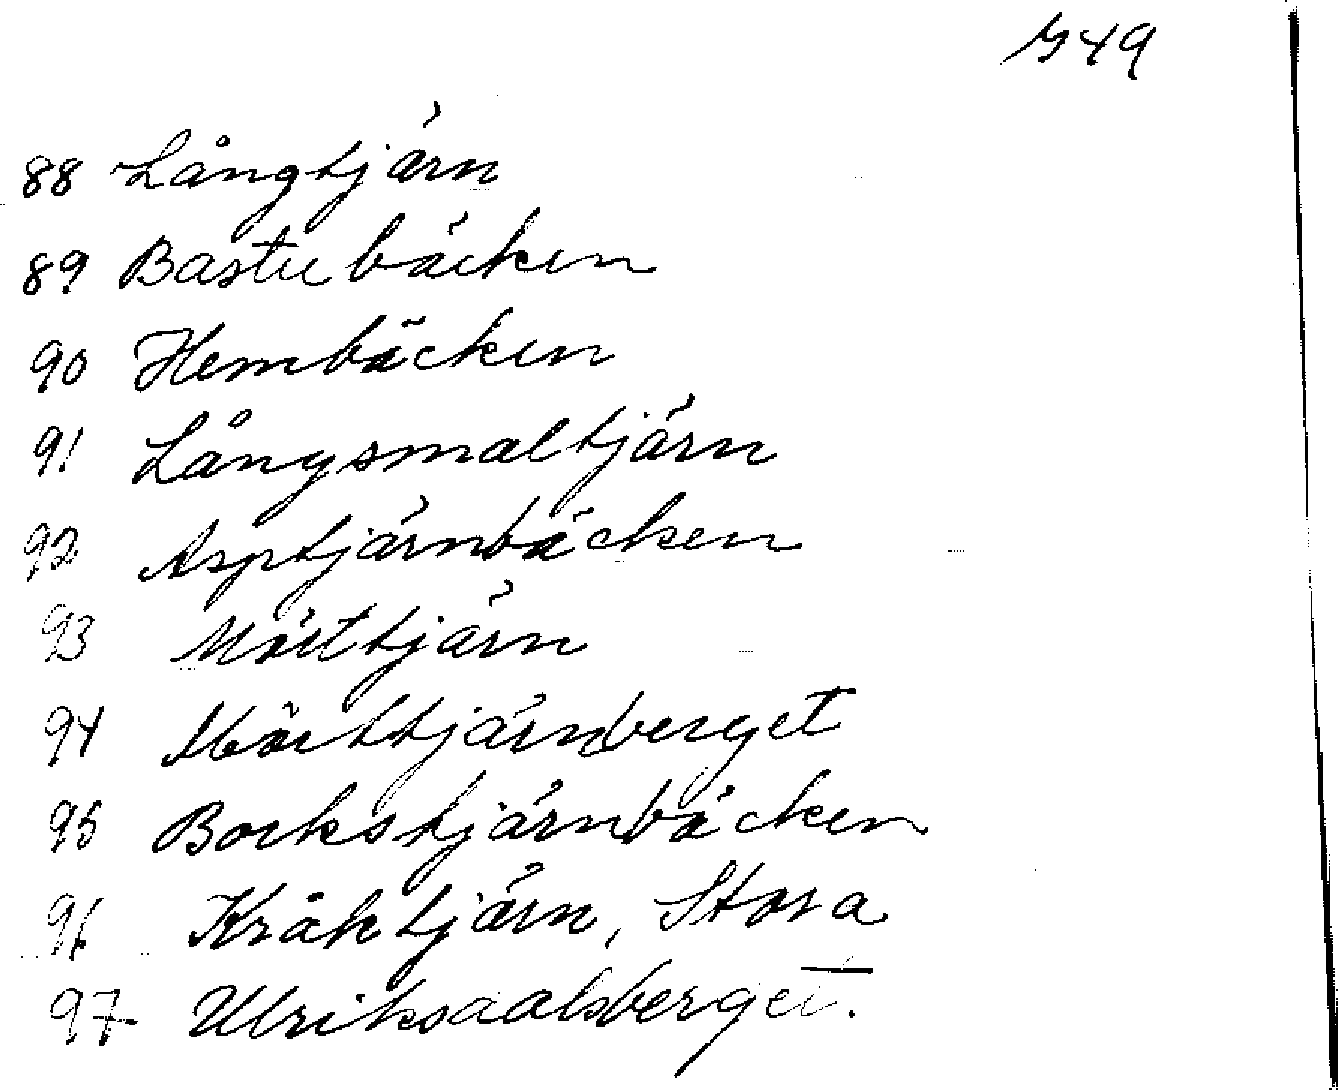 88 Långtjärn
89 Bastubäcken
90 Hembäcken
91 Långsmaltjärn
92 Asptjärnbäcken
93 Mörttjärn
94 Mörttjärnberget
95 Bockstjärnbäcken
96 Kråktjärn, Stora
97 Ulriksdalsberget.